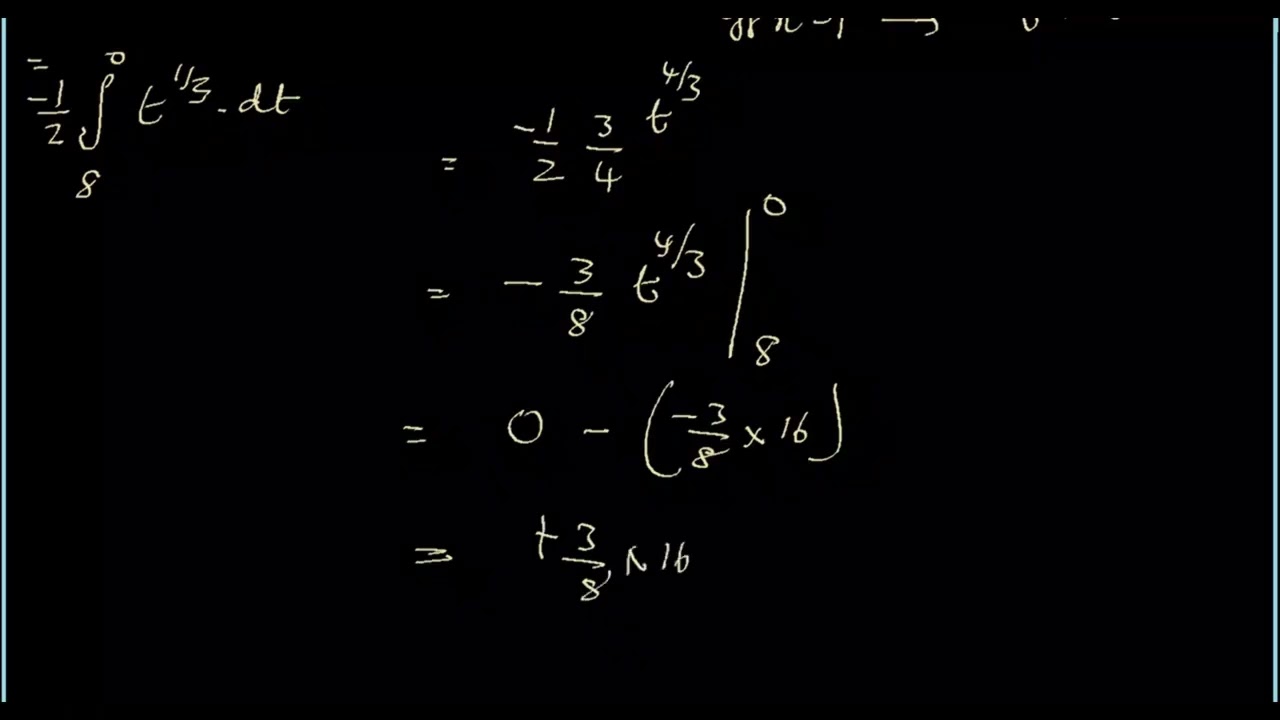 = -1/2 ∫_8^0 t^{1/3} . dt
= -1/2 3/4 t^{4/3}
= - 3/8 t^{4/3} |_8^0
= 0 - (-3/8 × 16)
= + 3/8 × 16